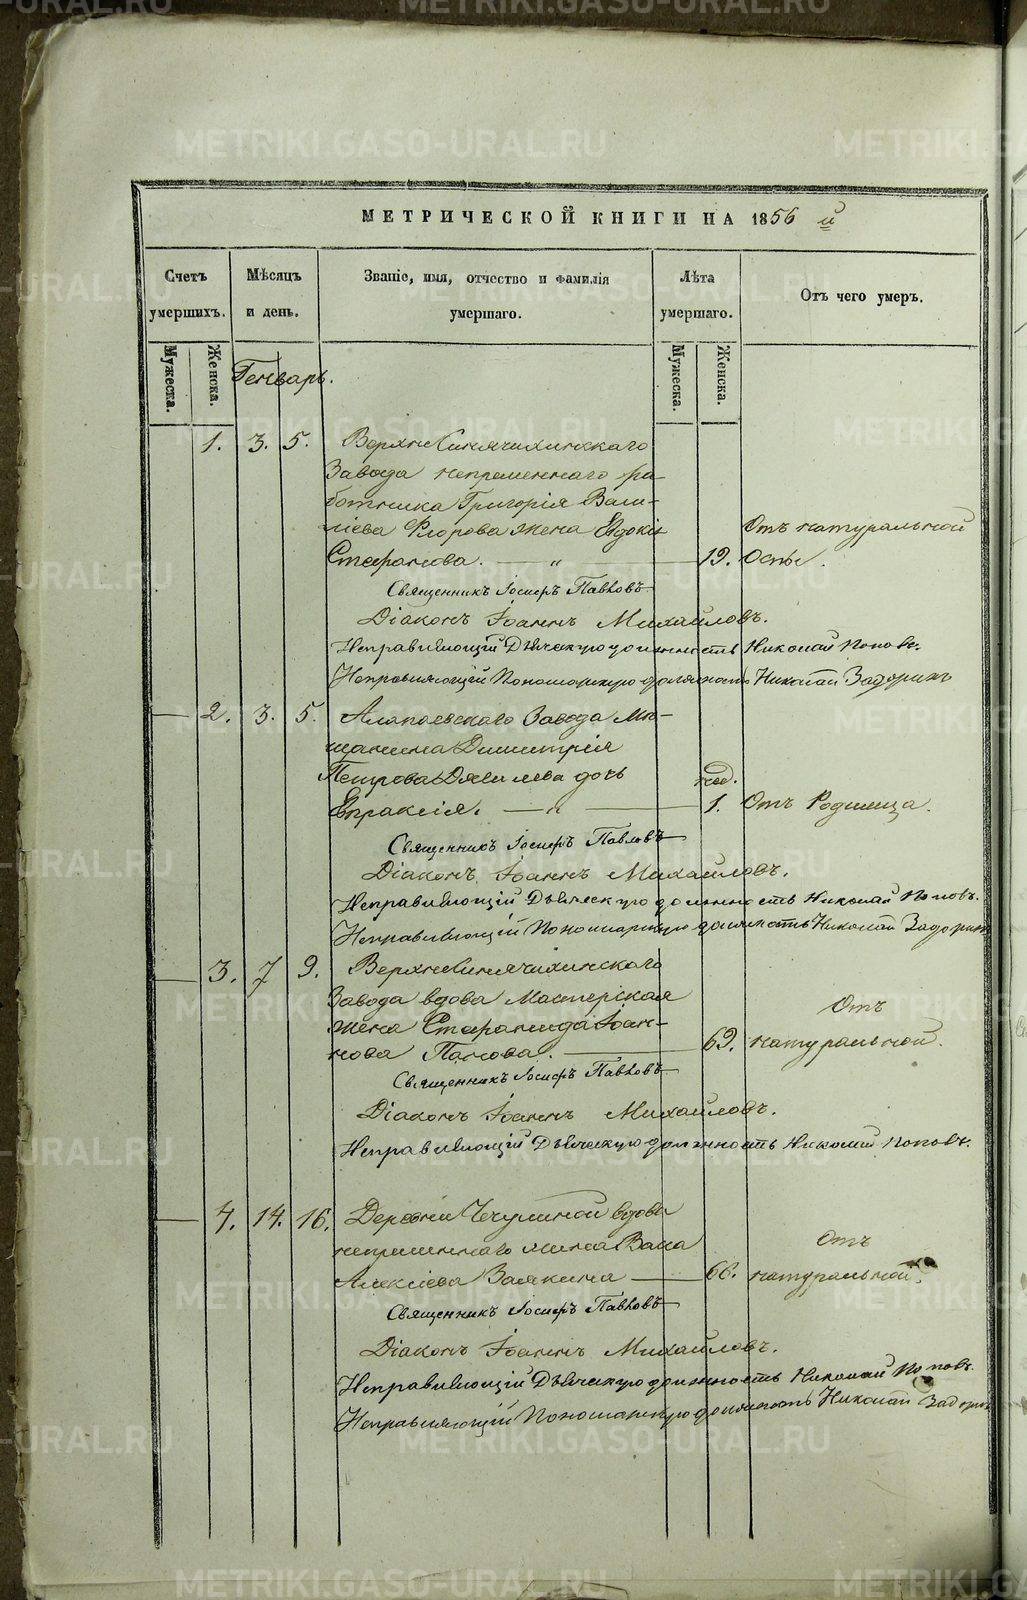 МЕТРИЧЕСКОЙ КНИГИ НА 1856 й
Счетъ умершихъ.
Мѣсяцъ и день.
Званіе, имя, отчество и фамилія умершаго.
Лѣта умершаго.
Отъ чего умеръ.
Мужеска.
Женска.
Мужеска.
Женска.
Генварь.
1. 3. 5. Верхнесинячихинскаго
Завода непременнаго ра-
ботника Григорія Васи-
ліева Флорова жена Евдокія Отъ натуральной
Стефанова. — „ — 19. Оспы.
Священникъ Іосифъ Павловъ
Діаконъ Іоаннъ Михайловъ.
Исправляющій Дьяческую должность Николай Поповъ.
Исправляющій Пономарскую должность Николай Задоринъ
2. 3. 5. Алапаевскаго Завода Мѣ-
щанина Димитрія
Петрова дочь нед.
Евпраксія. — „ — 1. Отъ Родимца.
Священникъ Іосифъ Павловъ
Діаконъ Іоаннъ Михайловъ.
Исправляющій Дьяческую должность Николай Поповъ.
Исправляющій Пономарскую должность Николай Задоринъ
3. 7 9. Верхнесинячихинскаго
Завода вдова Мастерская Отъ
жена Стефанида Іоан-
нова Панова. — 69. натуральной.
Священникъ Іосифъ Павловъ
Діаконъ Іоаннъ Михайловъ.
Исправляющій Дьяческую должность Николай Поповъ.
4. 14. 16. Деревни Чечулиной вдова
непременнаго жена Васса Отъ
Алексіева Заякина — 66. натуральной.
Священникъ Іосифъ Павловъ
Діаконъ Іоаннъ Михайловъ.
Исправляющій Дьяческую должность Николай Поповъ.
Исправляющій Пономарскую должность Николай Задоринъ
METRIKI.GASO-URAL.RU